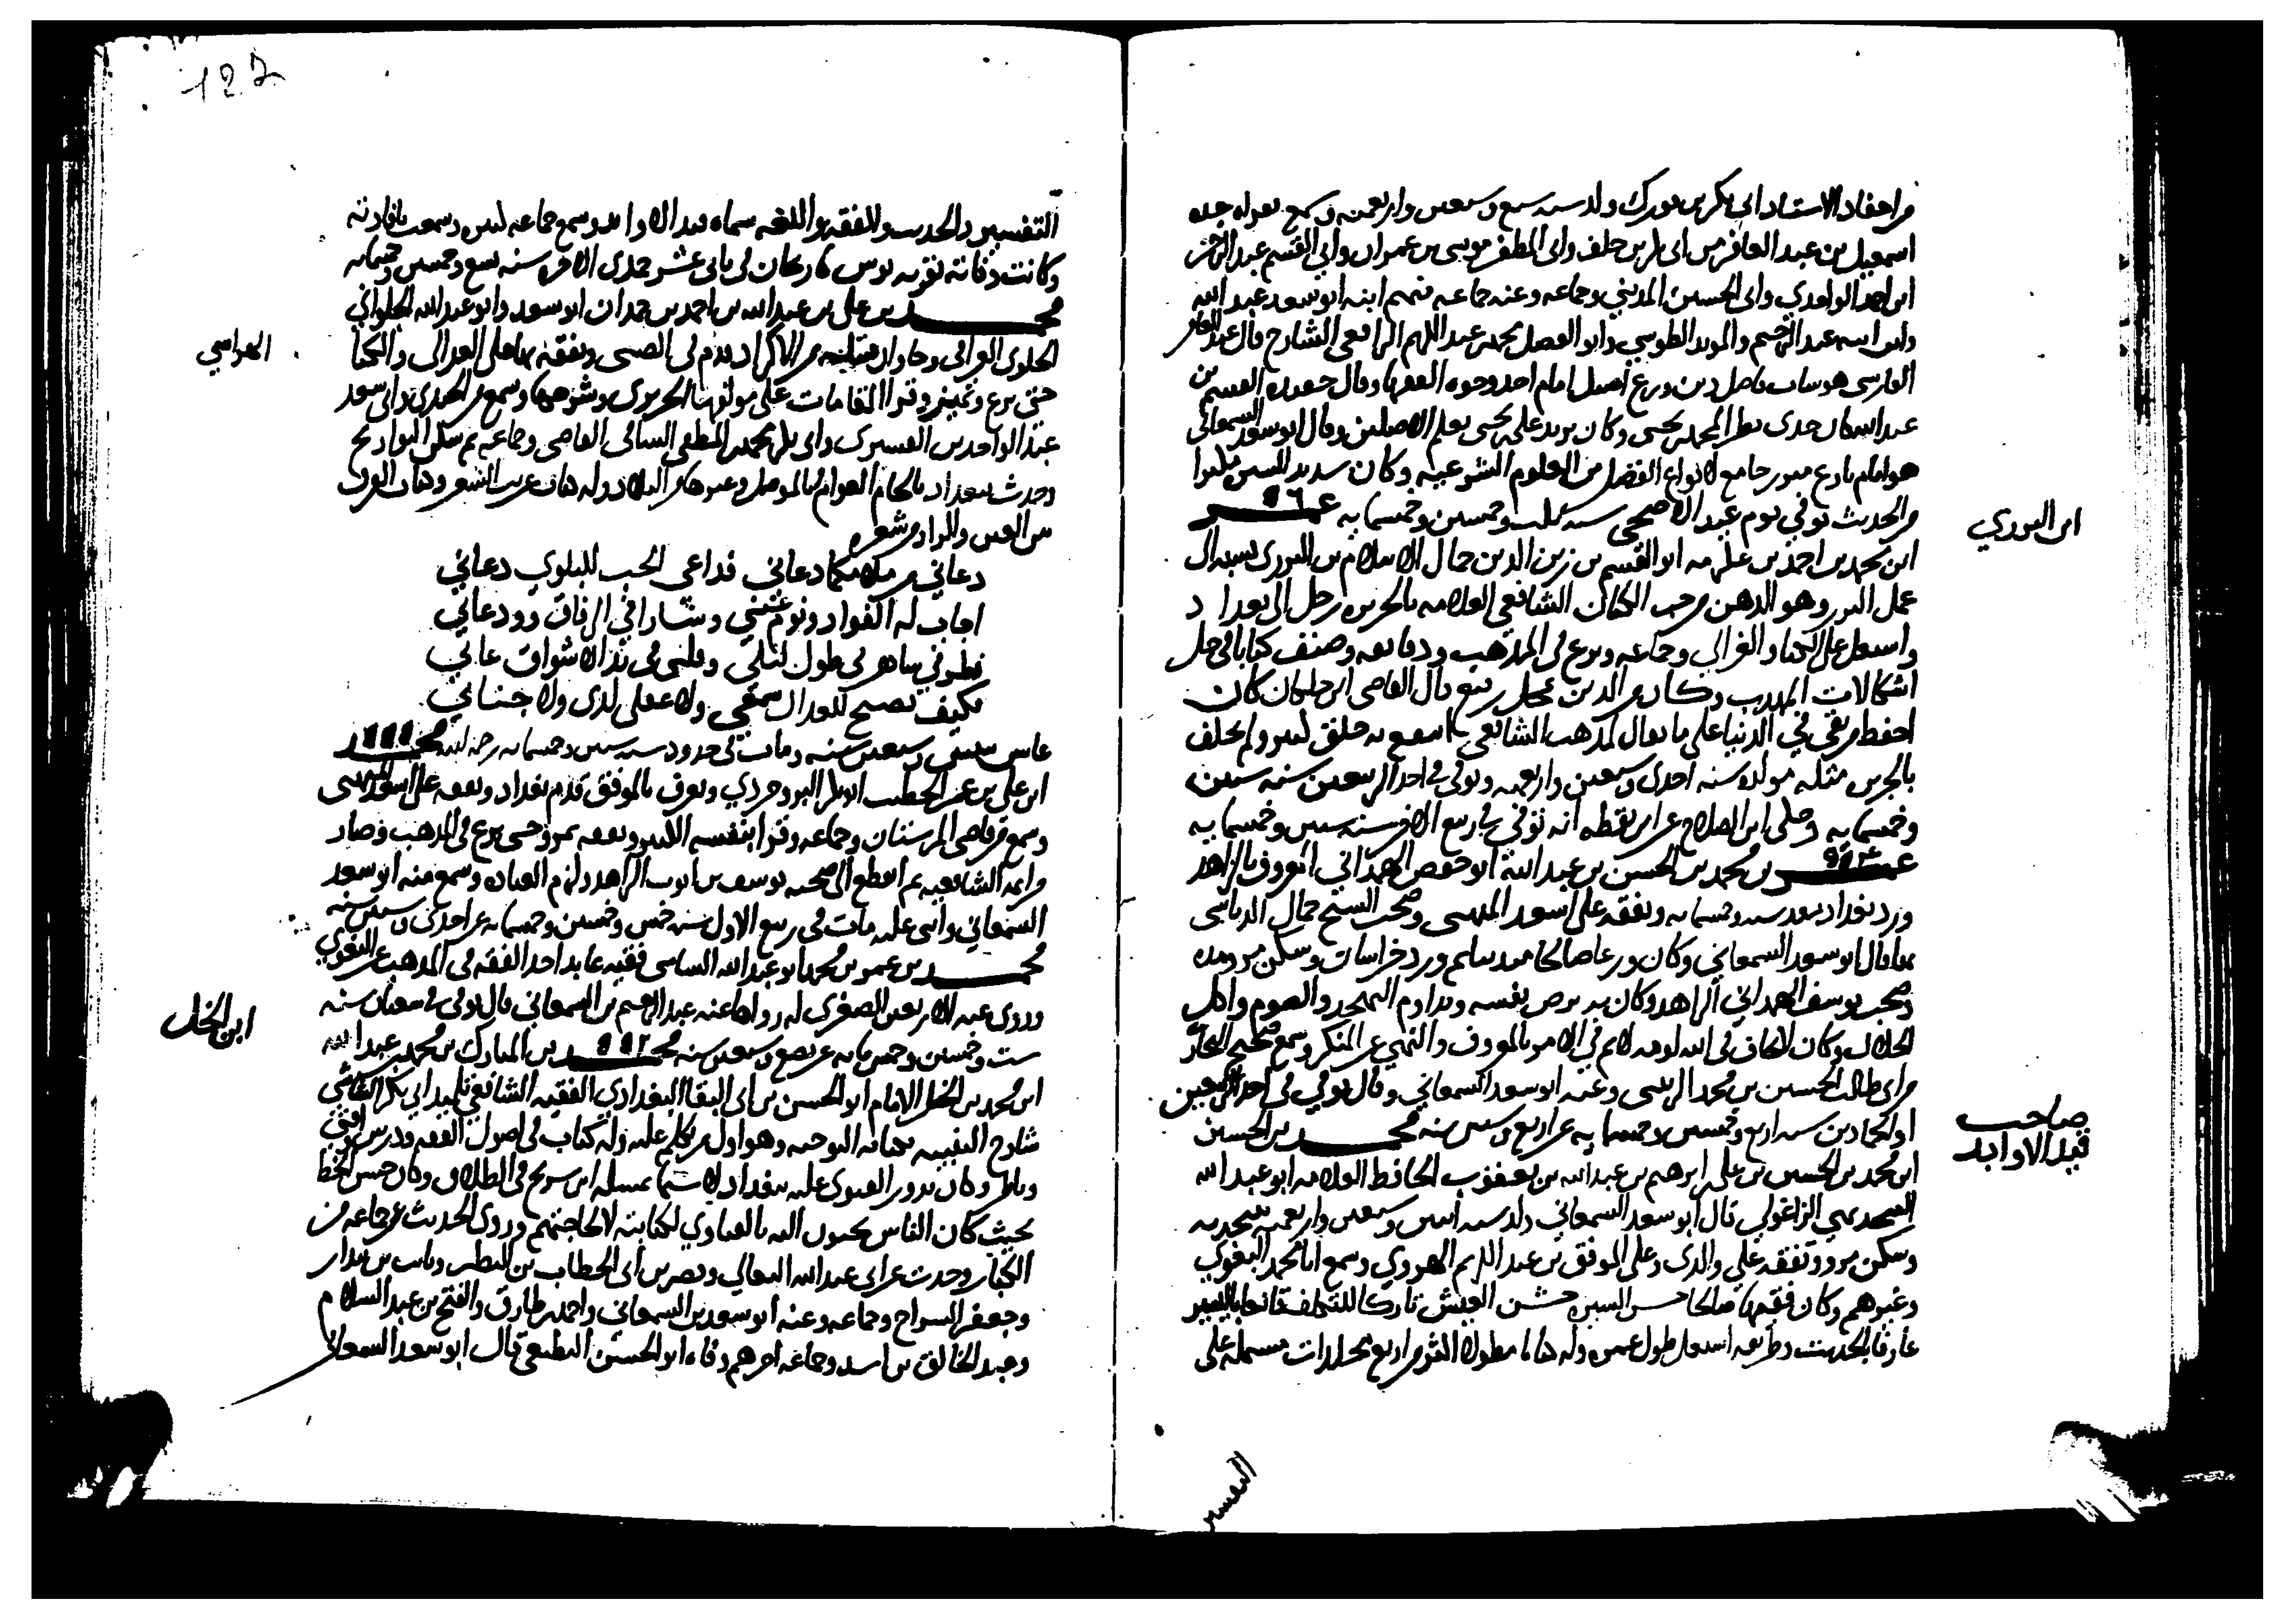 من احفاد الاستاد ابي بكر بن فورك ولد سنه سبع وسبعين واربعميه وسمع بقراه جده
اسمعيل بن عبد الغافر من ابي بكر بن خلف وابي المظفر موسى بن عمران وابي القسم عبد الرحمن
ابن احمد الواحدي وابي الحسن المديني وجماعه وعنه جماعه منهم ابنه ابو سعد عبد الله
وابن ابنه عبد الرحيم والمويد الطوسي وابو الفضل محمد بن عبد الكريم الرافعي الشارح قال عبد الغافر
الفارسي هو شاب فاضل دين ورع اصيل امام احد وجوه الفقها وقال حفيده القسم بن
عبد الله كان جدي نظير محمد بن يحيى وكان يزيد على يحيى بعلم الاصلين وقال ابو سعد السمعاني
هو امام بارع مبرز جامع لانواع الفضل من العلوم الشرعيه وكان سديد السيره مكثرا
من الحديث توفي يوم عيد الاضحى سنه ثلث وخمسين وخمسمايه عمر
ابن محمد بن احمد بن عكرمه ابو القسم بن زين الدين جمال الاسلام بن البزري نسبه الى
عمل البزر وهو الدهن من حب الكتان الشافعي العلامه بالجزيره رحل الى بغداد
واشتغل على الكيا والغزالي وجماعه وبرع في المذهب ودقايقه وصنف كتابا في حل
اشكالات المهذب وكان من الدين بمحل رفيع قال القاضي ابن خلكان كان
احفظ من بقي في الدنيا على ما يقال لمذهب الشافعي انتفع به خلق كثير ولم يخلف
بالجزيره مثله مولده سنه احدى وسبعين واربعميه وتوفي في احد الربيعين سنه ستين
وخمسمايه وحكى ابن الصلاح عن ابن نقطه انه توفي في ربيع الاخر سنه ستين وخمسمايه
عمر بن محمد بن الحسن بن عبد الله ابو حفص الهمذاني المعروف بالزاهد
ورد بغداد بعد سنه وخمسمايه وتفقه على اسعد الميهني وصحب الشيخ حماد الدباس
فيما قال ابو سعد السمعاني وكان ورعا صالحا متدينا ثم ورد خراسان وسكن مرو مده
وصحب يوسف الهمداني الزاهد وكان يروض نفسه ويداوم التهجد والصوم واكل
الحلال وكان لا يخاف في الله لومه لايم في الامر بالمعروف والنهي عن المنكر وسمع صحيح البخاري
من ابي طالب الحسين بن محمد الزينبي وعنه ابو سعد السمعاني وقال توفي في احد الربيعين
او الجمادين سنه اربع وخمسين وخمسمايه عن اربع وستين سنه محمد بن الحسين
ابن محمد بن الحسين بن علي بن ابرهيم بن عبد الله بن يعقوب الحافظ العلامه ابو عبد الله
البنجديهي الزاغولي قال ابو سعد السمعاني ولد سنه اثنين وسبعين واربعميه ببنجديه
وسكن مرو وتفقه على والدي وعلى الموفق بن عبد الكريم الهروي وسمع ابا محمد البغوي
وغيرهم وكان فقيها صالحا حسن السيره خشن العيش تاركا للتكلف قانعا باليسير
عارفا بالحديث وطرقه اشتغل طول عمره وله كتابا مطولا اكثر من اربع مجلدات مشتمله على
ابن البزري
صاحب
قيد الاوابد
التفسير
127
التفسير والحديث والفقه واللغه سماه قيد الاوابد وسمع جماعه كثير وسمعت بافادته
وكانت وفاته بقريه نوس كاركان في ثاني عشر جمدى الاخره سنه تسع وخمسين وخمسمايه
محمد بن علي بن عبد الله بن احمد بن حمدان ابو سعد وابو عبد الله الحلواني
الحلوي العراقي وجاوان قبيله من الاكراد قدم في الصبى وتفقه بها على الغزالي والكيا
حتى برع وتميز وقرا المقامات على مولفها الحريري وشرحها وسمع من الحميدي وابي سعد
عبد الواحد بن القسيري وابي بكر محمد بن المظفر الشامي القاضي وجماعه ثم سكن البوازيج
وحدث ببغداد بالجام العوام بالموصل وغيرها من البلاد وله كتاب عريب الشعر وكتاب الفرق
بين الغين والراد ومن شعره
دعاني من ملامكما دعاني فداعي الحب للبلوى دعاني
اجاب له الفواد ونوم عيني وسارا في الرفاق وودعاني
فطرفي ساهر في طول ليلي وقلبي في يد الاشواق عاني
فكيف يصيح للعدال سمعي ولا عقلي لدي ولا جناني
عاش بضعا وسبعين سنه ومات في حدود سنه ستين وخمسمايه رحمه الله محمد
ابن علي بن عمر الخطيب ابو بكر البروجردي ويعرف بالموفق قدم بغداد وتفقه على اسعد الميهني
وسمع من قاضي المرستان وجماعه وقرا بنفسه الكثير وتفقه بمرو حتى برع في المذهب وصار
من ايمه الشافعيه ثم انقطع الى صحبه يوسف بن ايوب الزاهد ولزم العباده وسمع منه ابو سعد
السمعاني واثنى عليه مات في ربيع الاول سنه خمس وخمسين وخمسمايه عن احدى وستين سنه
محمد بن عمر بن محمد ابو عبد الله الشاشي فقيه عابد اخذ الفقه في المذهب عن البغوي
وروى عنه الاربعين الصغرى له رواها عنه عبد الرحيم بن السمعاني قال توفي في شعبان سنه
ست وخمسين وخمسمايه عن بضع وسبعين سنه محمد بن المبارك بن محمد بن عبد الله
ابن محمد بن الخل الامام ابو الحسن بن ابي البقا البغدادي الفقيه الشافعي تلميذ ابي بكر الشاشي
شارح التنبيه بكتابه التوجيه وهو اول من تكلم عليه وله كتاب في اصول الفقه ودرس وافتى
وناظر وكان تدور الفتوى عليه ببغداد لا سيما بمسله ابن سريج في الطلاق وكان حسن الخط
بحيث كان الناس يحبون اليه بالفتاوي لكتابته لا لحاجتهم وروى الحديث عن جماعه من
الكبار وحدث عن ابي عبد الله النعالي ونصر بن ابي الخطاب بن البطر وثابت بن بندار
وجعفر السراج وجماعه وعنه ابو سعد بن السمعاني واحمد بن طارق والفتح بن عبد السلام
وعبد الخالق بن اسد وجماعه اخرهم وفاه ابو الحسن القطيعي قال ابو سعد السمعاني
الهراسي
ابن الخل